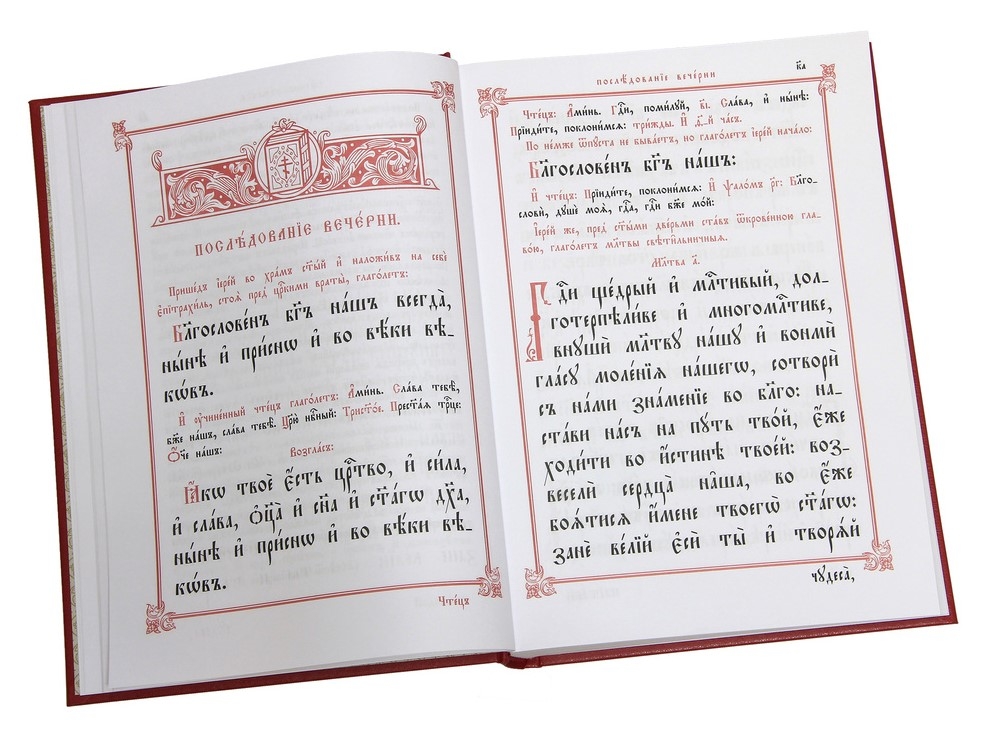 ПОСЛѢ́ДОВАНЇЕ ВЕЧЕ́РНИ.
Прише́дъ і҆ере́й во хра́мъ ст҃ы́й и҆ наложи́въ на себѐ
є҆пїтрахи́ль, стоѧ̀ пред̾ цр҃кими враты̀, глаго́летъ:
Бл҃гослове́нъ бг҃ъ на́шъ всегда̀,
ны́нѣ и҆ при́снѡ и҆ во вѣ́ки вѣ-
кѡ́въ.
И҆ ᲂу҆чине́нный чте́цъ глаго́летъ: А҆ми́нь. Сла́ва тебѣ̀,
бж҃е на́шъ, сла́ва тебѣ̀. Цр҃ю̀ нбⷭ҇ный: Трист҃о́е. Прест҃а́ѧ трⷪ҇це:
Ѻ҆́ч҃е на́шъ:
Возгла́съ:
Ꙗ҆́кѡ твоѐ є҆́сть црⷭ҇тво, и҆ си́ла,
и҆ сла́ва, ѻ҆ц҃а̀ и҆ сн҃а и҆ ст҃а́гѡ дх҃а,
ны́нѣ и҆ при́снѡ и҆ во вѣ́ки вѣ-
кѡ́въ.
Чте́цъ
послѣ́дованїе вече́рни
к҃а
Чте́цъ: А҆ми́нь. Гдⷭ҇и, поми́луй, в҃і. Сла́ва, и҆ ны́нѣ:
Прїиди́те, поклони́мсѧ: три́жды. И҆ а҃-й ча́съ.
По не́мже ѿпу́ста не быва́етъ, но глаго́летъ і҆ере́й нача́ло:
Бл҃гослове́нъ бг҃ъ на́шъ:
И҆ чте́цъ: Прїиди́те, поклони́мсѧ: И҆ ѱало́мъ р҃г: Бл҃го-
словѝ, душѐ моѧ̀, гдⷭ҇а, гдⷭ҇и бж҃е мо́й:
І҆ере́й же, пред̾ ст҃ы́ми две́рьми ста́въ ѿкрове́нною гла-
во́ю, глаго́летъ мл҃твы свѣти́льничныѧ.
Мл҃тва а҃.
Гдⷭ҇и ще́дрый и҆ млⷭ҇тивый, дол-
готерпѣли́ве и҆ многомлⷭ҇тиве,
внушѝ мл҃тву на́шу и҆ вонмѝ
гла́су моле́нїѧ на́шегѡ, сотворѝ
съ на́ми зна́менїе во бл҃го: на-
ста́ви на́съ на пу́ть тво́й, є҆́же
ходи́ти во и҆́стинѣ твое́й: воз-
веселѝ сердца̀ на́ша, во є҆́же
боѧ́тисѧ и҆́мене твоегѡ̀ ст҃а́гѡ:
занѐ ве́лїй є҆сѝ ты̀ и҆ творѧ́й
чꙋдеса̀,